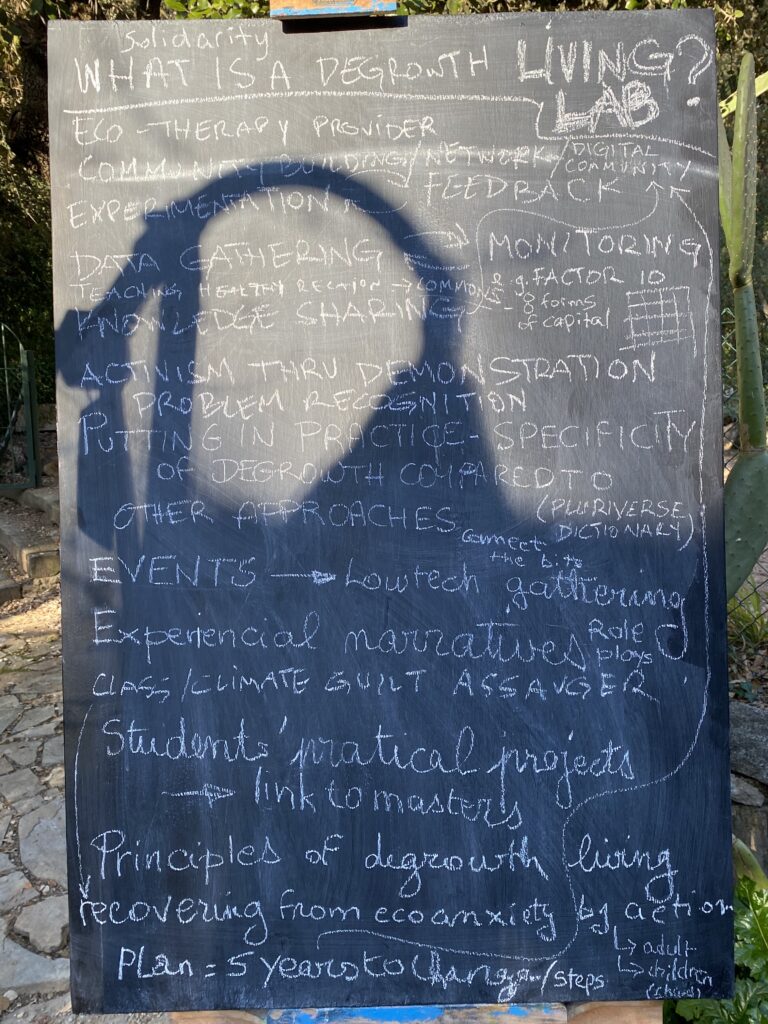 Solidarity
WHAT IS A DEGROWTH LIVING?
LAB
ECO-THERAPY PROVIDER
COMMUNITY BUILDING/NETWORK/DIGITAL
COMMUNITY
EXPERIMENTATION FEEDBACK
DATA GATHERING MONITORING
TEACHING HEALTHY RELATION → COMMONS
e.g. FACTOR 10
- 8 forms
of capital
KNOWLEDGE SHARING
ACTIVISM THRU DEMONSTRATION
PROBLEM RECOGNITION
PUTTING IN PRACTICE - SPECIFICITY
OF DEGROWTH COMPARED TO
OTHER APPROACHES (PLURIVERSE
DICTIONARY)
connect
the bits
EVENTS → Lowtech gathering
Experiencial narratives Role
plays
CLASS/CLIMATE GUILT ASSAUGER
Students' pratical projects
→ link to masters
Principles of degrowth living
recovering from ecoanxiety by action
↳ adult
↳ children
(school)
Plan = 5 years to change/steps